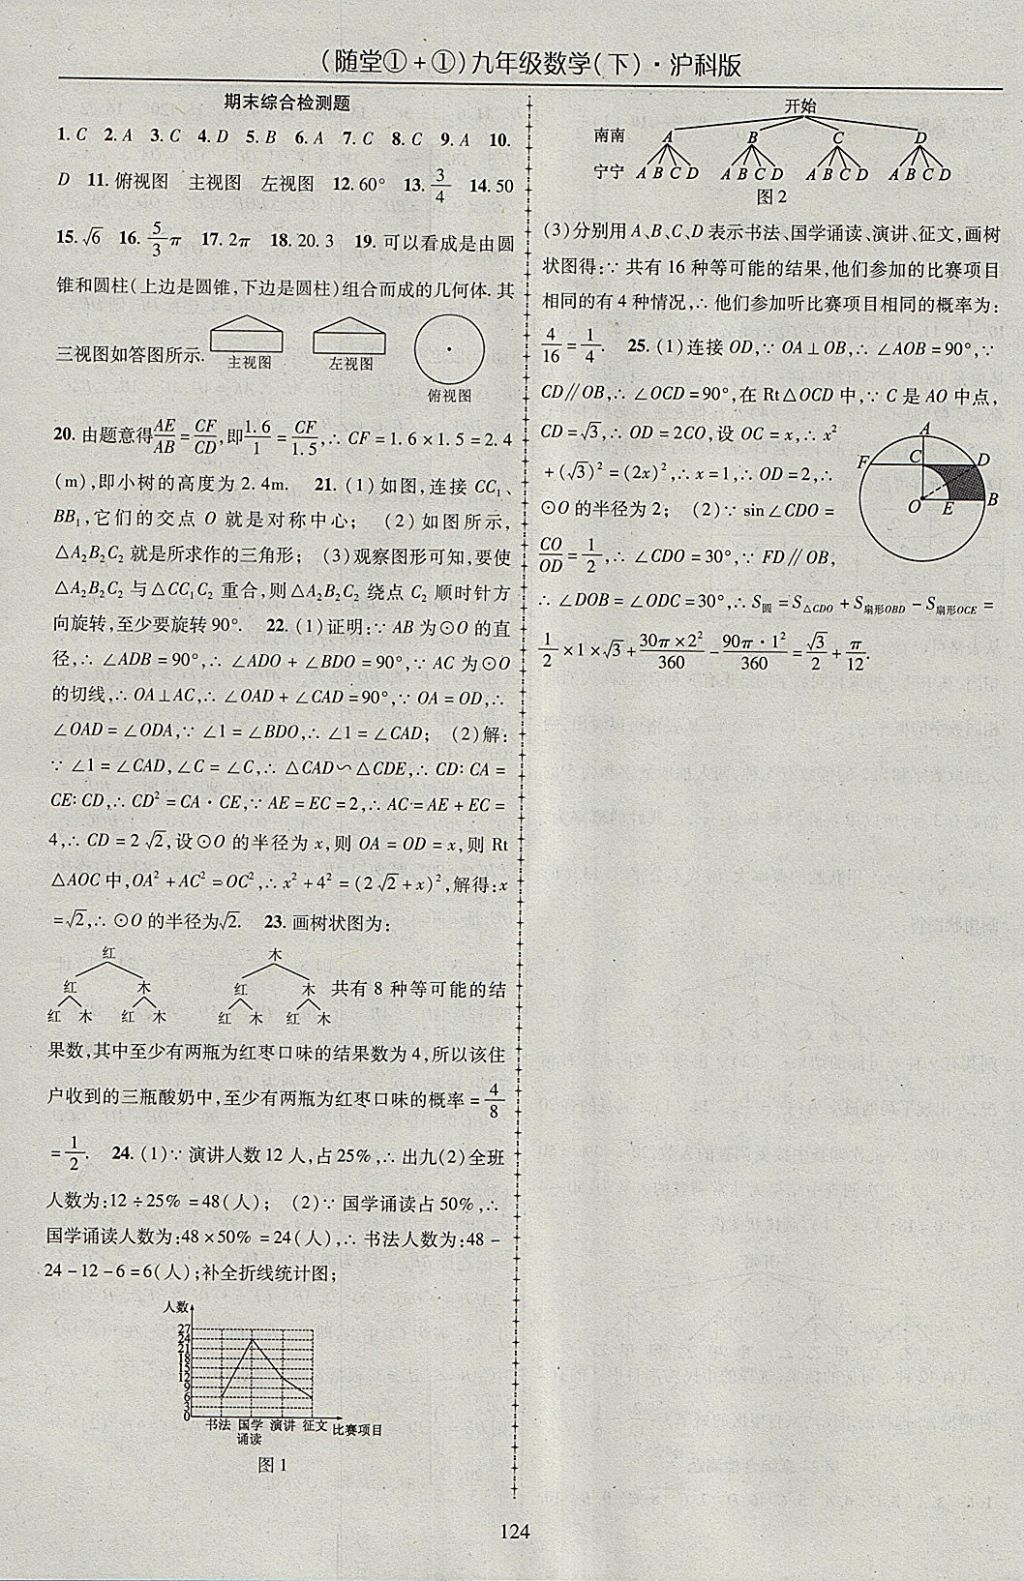 (随堂①+①)九年级数学(下)·沪科版
期末综合检测题
1. C 2. A 3. C 4. D 5. B 6. A 7. C 8. C 9. A 10.
D 11. 俯视图 主视图 左视图 12. 60° 13. 3/4 14. 50
15. √6 16. 5/3 π 17. 2π 18. 20. 3 19. 可以看成是由圆
锥和圆柱(上边是圆锥,下边是圆柱)组合而成的几何体. 其
三视图如答图所示.
主视图 左视图
俯视图
20. 由题意得AE/AB = CF/CD,即1.6/1 = CF/1.5,∴ CF = 1. 6 × 1. 5 = 2. 4
(m),即小树的高度为 2. 4m. 21. (1)如图,连接 CC₁、
BB₁,它们的交点 O 就是对称中心; (2)如图所示,
△A₂B₂C₂ 就是所求作的三角形; (3)观察图形可知,要使
△A₂B₂C₂ 与△CC₁C₂ 重合,则△A₂B₂C₂ 绕点 C₂ 顺时针方
向旋转,至少要旋转 90°. 22. (1)证明:∵ AB 为⊙O 的直
径,∴ ∠ADB = 90°,∴ ∠ADO + ∠BDO = 90°,∵ AC 为⊙O
的切线,∴ OA⊥AC,∴ ∠OAD + ∠CAD = 90°,∵ OA = OD,∴
∠OAD = ∠ODA,∵ ∠1 = ∠BDO,∴ ∠1 = ∠CAD; (2)解:
∵ ∠1 = ∠CAD,∠C = ∠C,∴ △CAD∽△CDE,∴ CD∶CA =
CE∶CD,∴ CD² = CA · CE,∵ AE = EC = 2,∴ AC = AE + EC =
4,∴ CD = 2√2,设⊙O 的半径为 x,则 OA = OD = x,则 Rt
△AOC 中,OA² + AC² = OC²,∴ x² + 4² = (2√2 + x)²,解得:x
= √2,∴ ⊙O 的半径为√2. 23. 画树状图为:
红 木
红 木 红 木 共有 8 种等可能的结
红 木 红 木 红 木 红 木
果数,其中至少有两瓶为红枣口味的结果数为 4,所以该住
户收到的三瓶酸奶中,至少有两瓶为红枣口味的概率 = 4/8
= 1/2. 24. (1)∵ 演讲人数 12 人,占 25%,∴ 出九(2)全班
人数为:12 ÷ 25% = 48(人); (2)∵ 国学诵读占 50%,∴
国学诵读人数为:48 × 50% = 24(人),∴ 书法人数为:48 -
24 - 12 - 6 = 6(人);补全折线统计图;
人数
27
24
21
18
15
12
9
6
3
0
书法 国学 演讲 征文 比赛项目
诵读
图 1
开始
南南 A B C D
宁宁 A B C D A B C D A B C D A B C D
图 2
(3)分别用 A、B、C、D 表示书法、国学诵读、演讲、征文,画树
状图得:∵ 共有 16 种等可能的结果,他们参加的比赛项目
相同的有 4 种情况,∴ 他们参加听比赛项目相同的概率为:
4/16 = 1/4. 25. (1)连接 OD,∵ OA⊥OB,∴ ∠AOB = 90°,∵
CD∥OB,∴ ∠OCD = 90°,在 Rt△OCD 中,∵ C 是 AO 中点,
CD = √3,∴ OD = 2CO,设 OC = x,∴ x²
+ (√3)² = (2x)²,∴ x = 1,∴ OD = 2,∴
⊙O 的半径为 2; (2)∵ sin∠CDO =
CO/OD = 1/2,∴ ∠CDO = 30°,∵ FD∥OB,
A
F C D
O E B
∴ ∠DOB = ∠ODC = 30°,∴ S圆 = S△CDO + S扇形OBD - S扇形OCE =
1/2 × 1 × √3 + 30π × 2²/360 - 90π · 1²/360 = √3/2 + π/12.
124